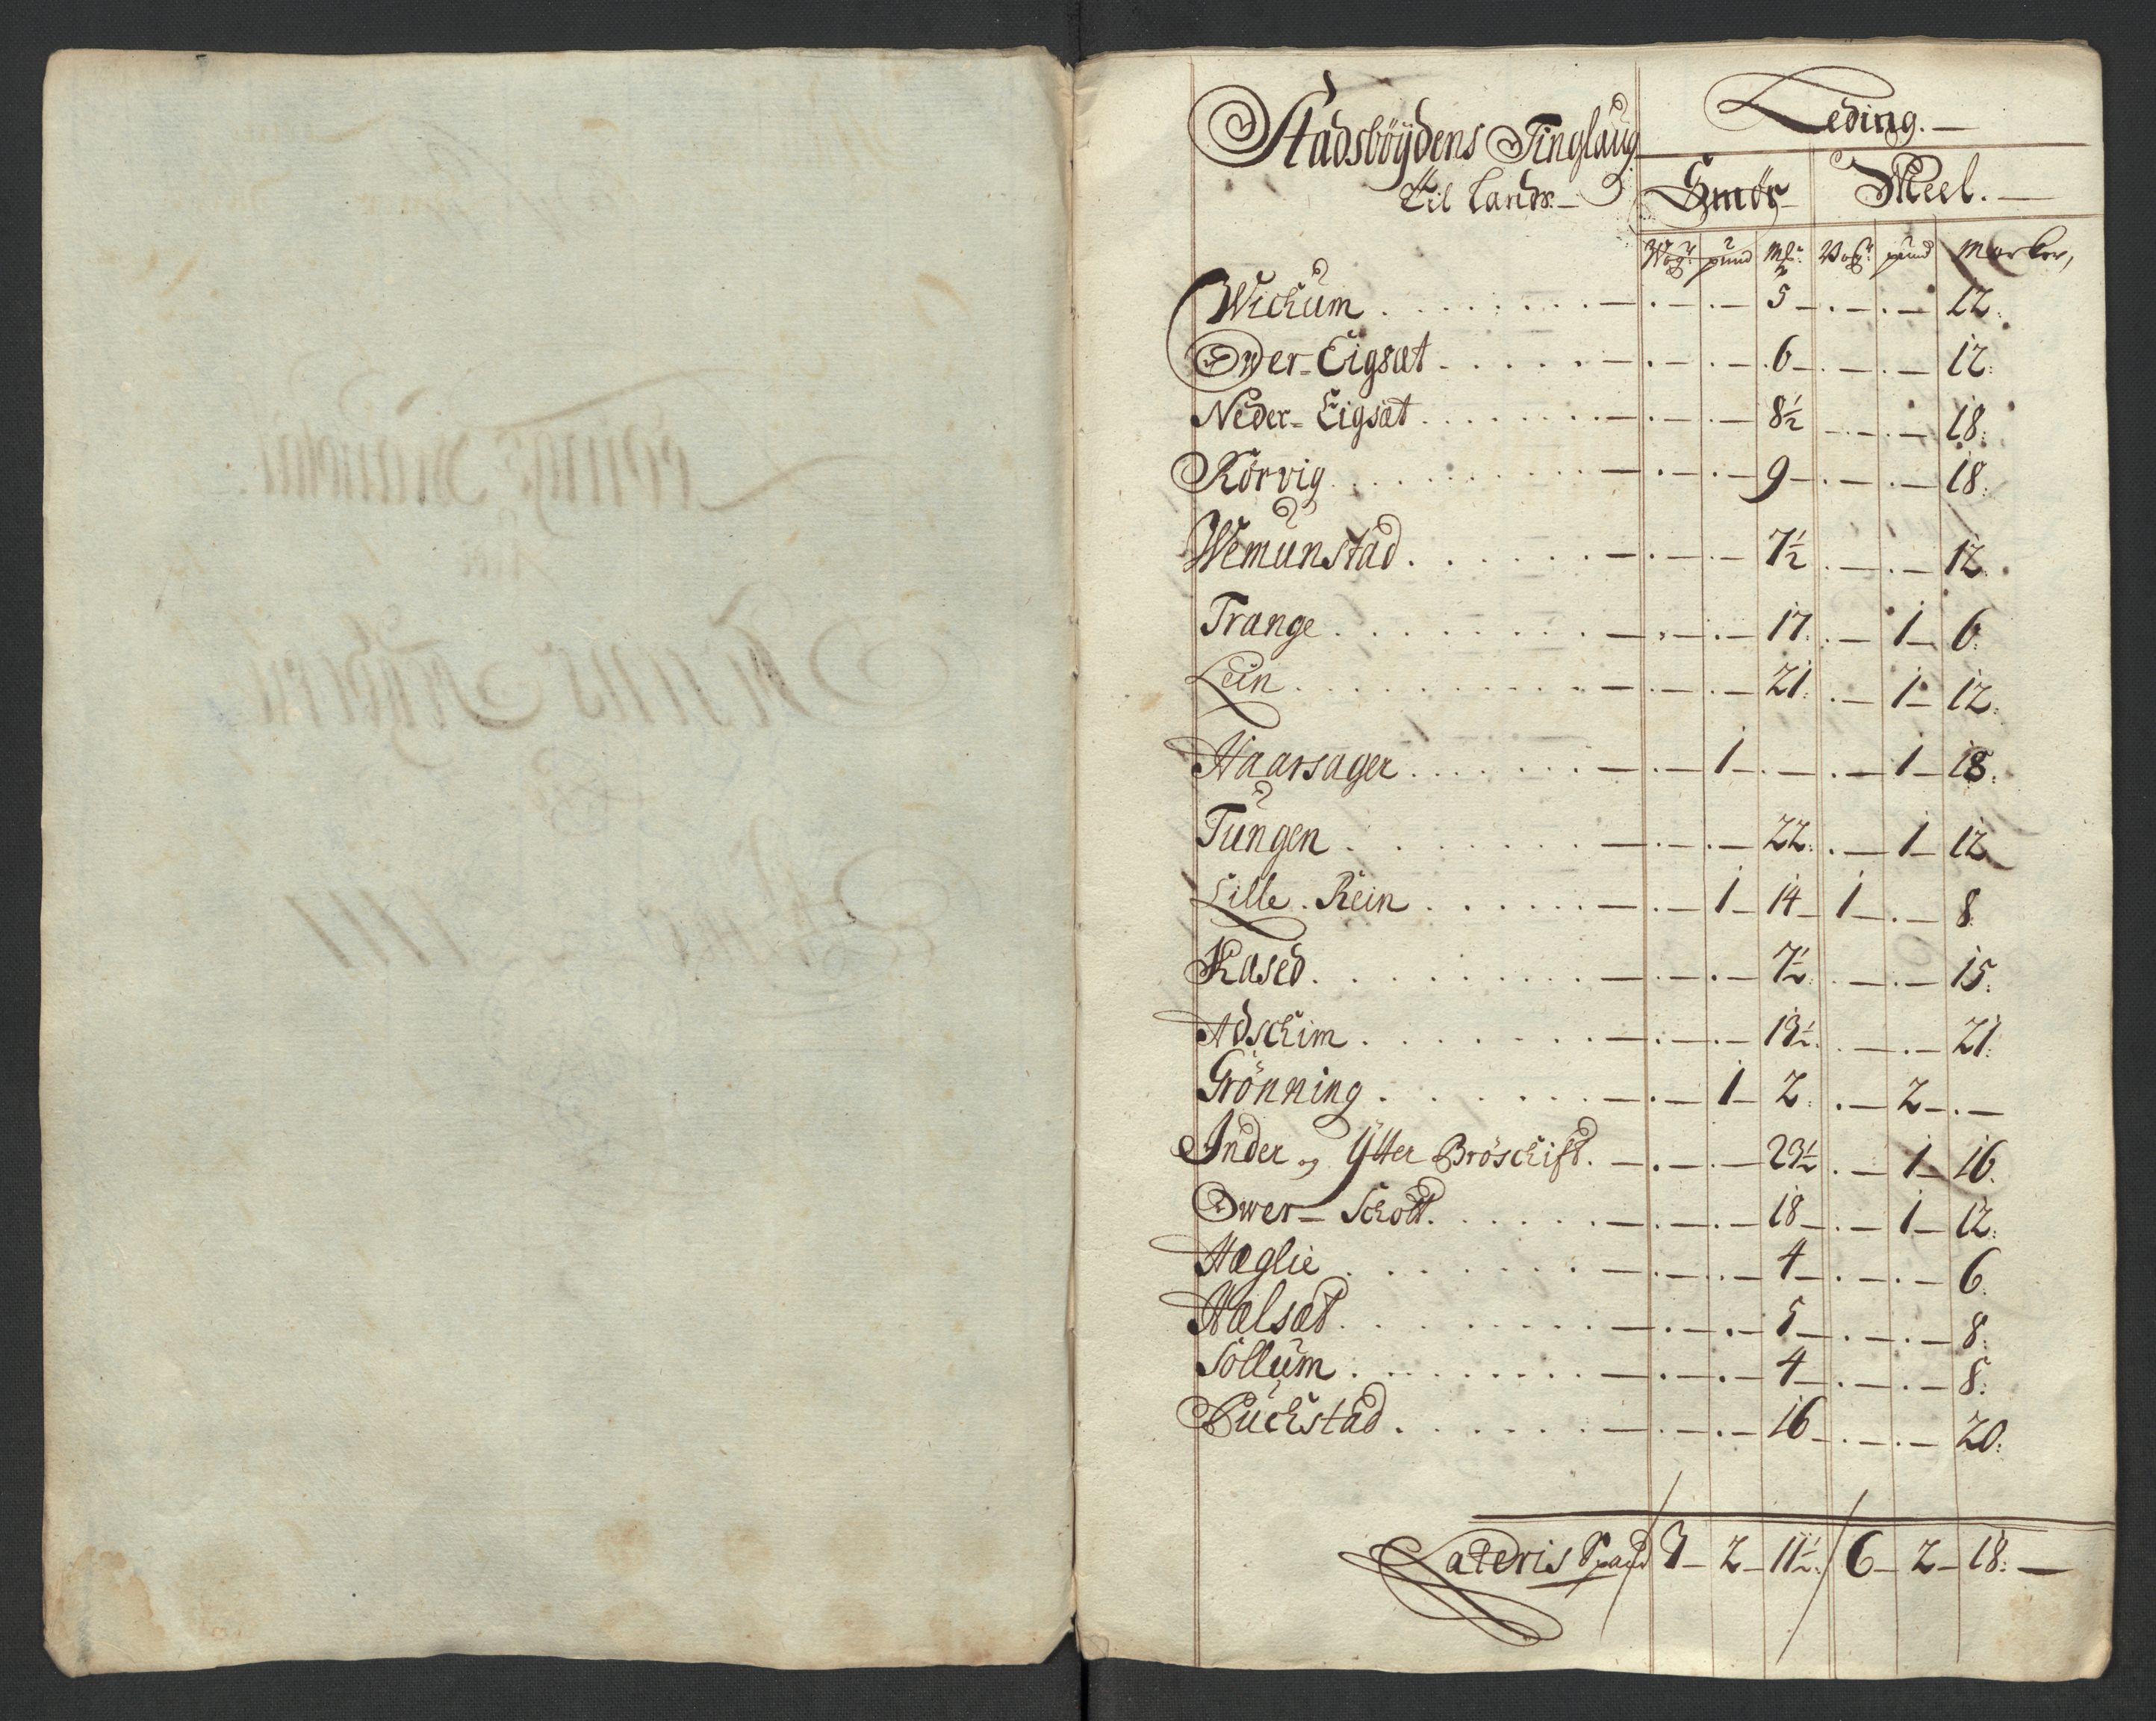 Stadsbøÿdens Tinglaug
til lands. —
Leding. —
Smør
Meel. —
Wog: pund Mk: Vog: pund Marker,
Wichum . . . . . . . — . — . — 5 — . — . — 12:
Ower-Eigsæt . . . . . — . — . — 6 — . — . — 12:
Neder-Eigsæt . . . . . . — . — . — 8½ . — . — 18:
Rørvig . . . . . . . — . — . — 9 — . — . — 18:
Wemunstad . . . . . . — . — . — 7½ . — . — 12.
Trange . . . . . . . — . — . — 17: . — 1 — 6:
Lein . . . . . . . . — . — . — 21: . — 1 — 12:
Haarsager . . . . . . — . — 1 — . — . — 1 — 18:
Tungen . . . . . . . — . — . — 22: . — 1 — 12
Lille. Rein . . . . . . — . — 1 — 14 — 1 — . — 8:
Kased . . . . . . . — . — . — 7½: . — . — 15:
Adschim . . . . . . . — . — . — 13½: . — . — 21:
Grønning . . . . . . — . — 1 — 2: . — 2 — . —
Inder og Ÿtter Brøschift. — . — . — 23½ . — 1 — 16.
Ower — Schott. . . . . . — . — . — 18 — . — 1 — 12:
Hæglie . . . . . . . — . — . — 4 — . — . — 6.
Hælsæt . . . . . . . — . — . — 5 — . — . — 8:
Sollum . . . . . . . — . — . — 4 — . — . — 8:
Buchstad . . . . . . — . — . — 16 — . — . — 20:
Lateris Spand 3 — 2 — 11½: 6 — 2 — 18: —